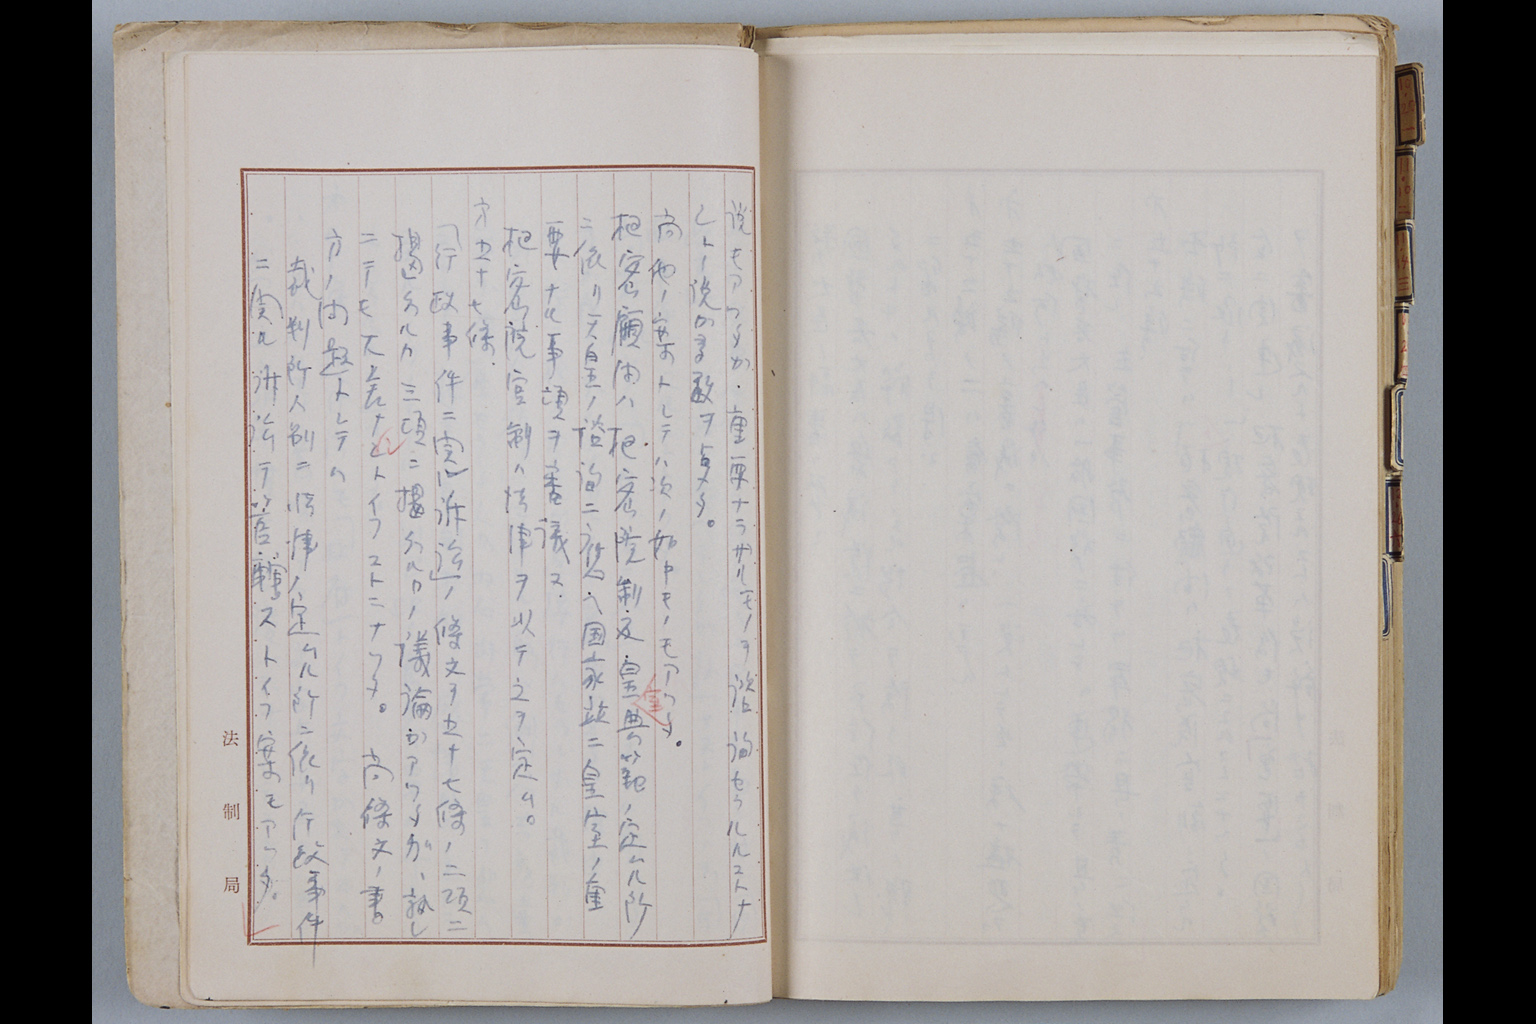 説モアツタガ、重要ナラザルモノヲ諮詢セラルルコトナ
シトノ説ガ多数ヲ占メタ。
尚他ノ案トシテハ次ノ如キモノモアツタ。
枢密顧問ハ枢密院制及皇室典範ノ定ムル所
ニ依リ天皇ノ諮詢ニ応ヘ国家並ニ皇室ノ重
要ナル事項ヲ審議ス
枢密院官制ハ法律ヲ以テ之ヲ定ム。
第五十七條
「行政事件ニ関スル訴訟」ノ條文ヲ五十七條ノ二項ニ
掲グルカ三項ニ掲グルカノ議論ガアツタガ、孰レ
ニテモ大差ナシトイフコトニナツタ。尚條文ノ書
方ノ問題トシテハ
裁判所ハ別ニ法律ノ定ムル所ニ依リ行政事件
ニ関スル訴訟ヲ管轄ストイフ案モアツタ。
法制局